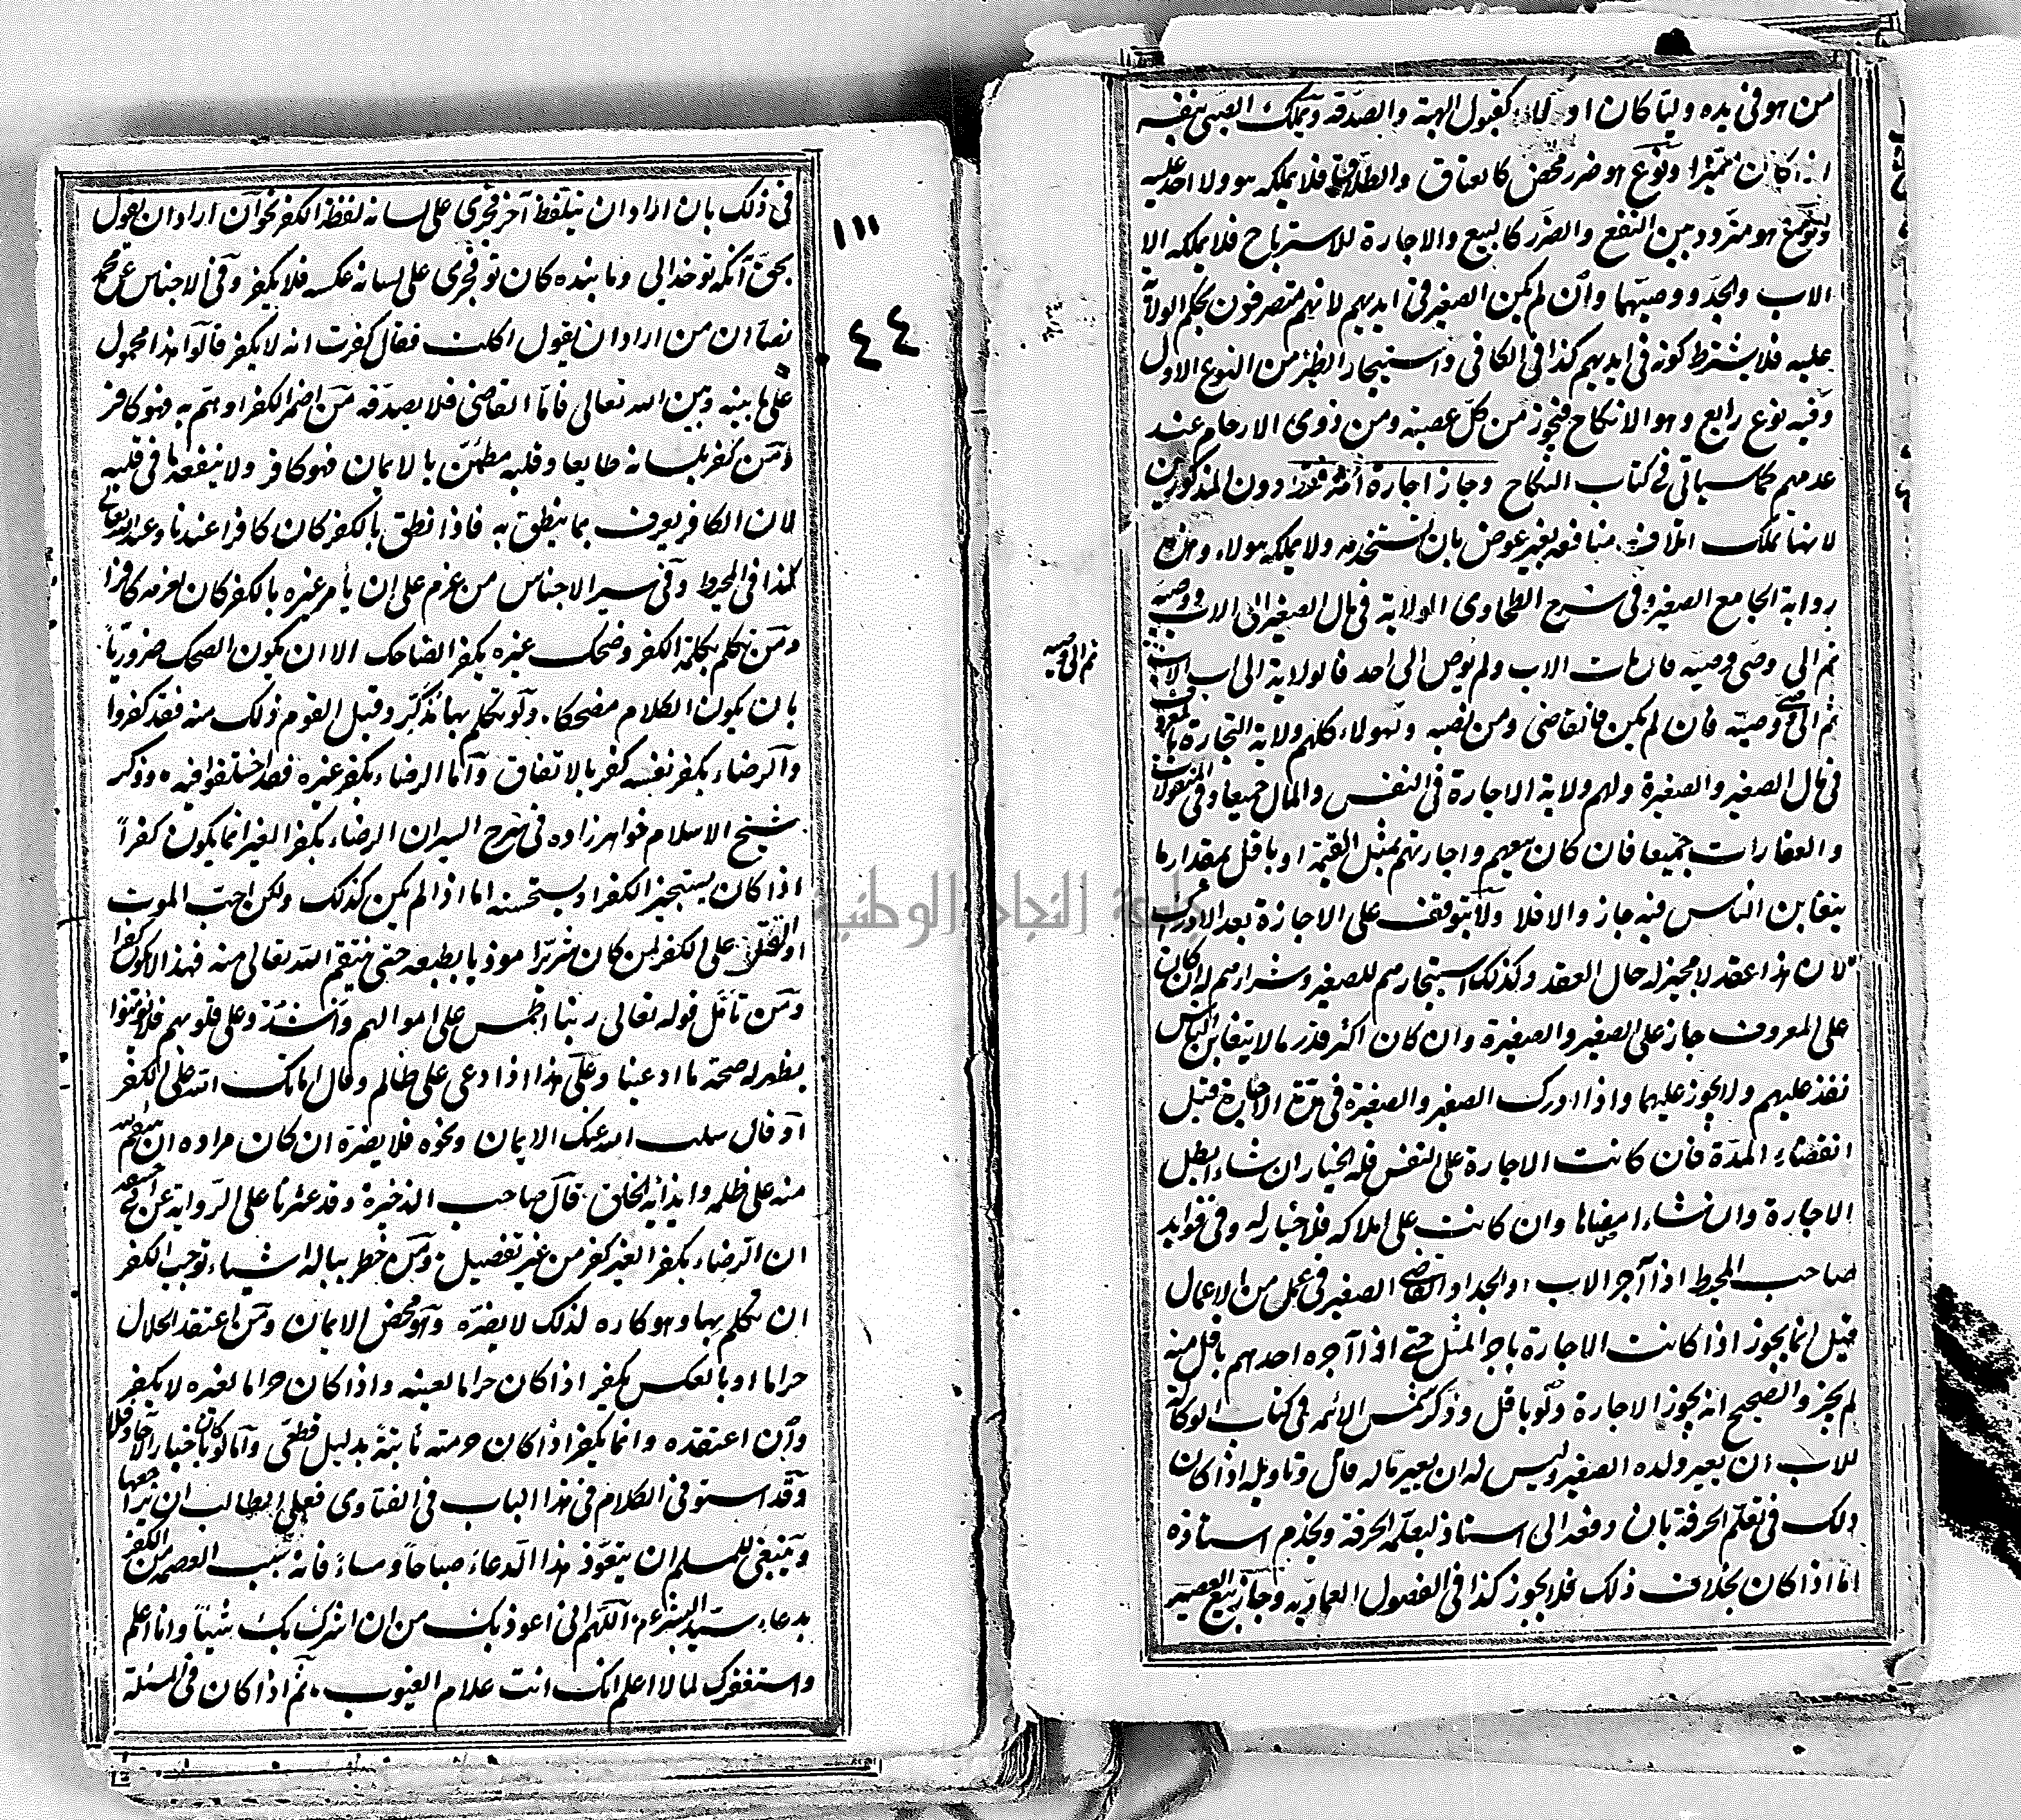 من هو في يده وليا كان او لا كقبول الهبة والصدقة ويملك الصبي بنفسه
اذا كان مميزا ونوع هو ضرر محض كالعتاق والطلاق فلا يملكه هو ولا احد عليه
ونوع هو متردد بين النفع والضرر كالبيع والاجارة للاسترباح فلا يملكه الا
الاب والجد ووصيهما وان لم يكن الصغير في ايديهم لانهم متصرفون بحكم الولاية
عليه فلا يشترط كونه في ايديهم كذا في الكافي واستيجار الظئر من النوع الاول
وفيه نوع رابع وهو الانكاح فيجوز من كل عصبة ومن ذوي الارحام عند
عدمهم كما سيأتي في كتاب النكاح وجاز اجارة امه فقط دون المذكورين
لانها تملك اتلاف منافعه بغير عوض بان تستخدمه ولا يملكه هولاء وهذه
رواية الجامع الصغير وفي شرح الطحاوي الولاية في مال الصغير الى الاب ووصيه
ثم الى وصي وصيه فان مات الاب ولم يوص الى احد فالولاية الى اب الاب
ثم الى وصيه
ثم الى وصي وصيه فان لم يكن فالقاضي ومن نصبه ولهولاء كلهم ولاية التجارة بالمعروف
في مال الصغير والصغيرة ولهم ولاية الاجارة في النفس والمال جميعا وفي المنقولات
والعقارات جميعا فان كان بيعهم واجارتهم بمثل القيمة او باقل بمقدار ما
يتغابن الناس فيه جاز والا فلا ولا يتوقف على الاجازة بعد الادراك
لان هذا عقد لا مجيز له حال العقد وكذلك استيجارهم للصغير وشراؤهم له ان كان
على المعروف جاز على الصغير والصغيرة وان كان اكثر قدر ما لا يتغابن الناس
نفذ عليهم ولا يجوز عليهما واذا ادرك الصغير والصغيرة في مدة الاجارة قبل
انقضاء المدة فان كانت الاجارة على النفس فله الخيار ان شاء ابطل
الاجارة وان شاء امضاها وان كانت على املاكه فلا خيار له وفي فوايد
صاحب المحيط اذا آجر الاب او الجد او القاضي الصغير في عمل من الاعمال
قيل انما يجوز اذا كانت الاجارة باجر المثل حتى اذا آجره احدهم باقل منه
لم يجز والصحيح انه يجوز الاجارة ولو باقل وذكر شمس الائمه في كتاب الوكالة
للاب ان يعير ولده الصغير وليس له ان يعير ماله قال وتاويله اذا كان
ذلك في تعلم الحرفة بان دفعه الى استاذ ليعلمه الحرفة ويخدم استاذه
اما اذا كان بخلاف ذلك فلا يجوز كذا في الفصول العمادية وجاز بيع العصير
١١١
٤٤
في ذلك بان اراد ان يتلفظ آخر فجرى على لسانه لفظ الكفر نحو ان اراد ان يقول
بحق آنكه تو خدايى وما بنده كان تو فجرى على لسانه عكسه فلا يكفر وفي الاجناس عن محمد
نصا ان من اراد ان يقول اكلت فقال كفرت انه لا يكفر قالوا هذا محمول
على ما بينه وبين الله تعالى فاما القاضي فلا يصدقه من اضمر الكفر او هم به فهو كافر
ومن كفر بلسانه طايعا وقلبه مطمئن بالايمان فهو كافر ولا ينفعه ما في قلبه
لان الكافر يعرف بما ينطق به فاذا نطق بالكفر كان كافرا عندنا وعند الله تعالى
كذا في المحيط وفي سير الاجناس من عزم على ان يأمر غيره بالكفر كان بعزمه كافرا
ومن تكلم بكلمة الكفر وضحك غيره يكفر الضاحك الا ان يكون الضحك ضروريا
بان يكون الكلام مضحكا ولو تكلم بها مذكر وقبل القوم ذلك منه فقد كفروا
والرضاء بكفر نفسه كفر بالاتفاق واما الرضاء بكفر غيره فقد اختلفوا فيه وذكر
شيخ الاسلام خواهرزاده في شرح السير ان الرضاء بكفر الغير انما يكون كفرا
اذا كان يستجيز الكفر او يستحسنه اما اذا لم يكن كذلك ولكن احب الموت
او القتل على الكفر لمن كان شريرا موذيا بطبعه حتى ينتقم الله تعالى منه فهذا لا يكون كفرا
ومن تأمل قوله تعالى ربنا اطمس على اموالهم واشدد على قلوبهم فلا يؤمنوا
يظهر له صحة ما ادعينا وعلى هذا اذا دعى على ظالم وقال اماتك الله على الكفر
او قال سلب الله عنك الايمان ونحوه فلا يضره ان كان مراده ان ينتقم الله
منه على ظلمه وايذائه الخلق قال صاحب الذخيرة وقد عثرنا على الرواية عن
ان الرضاء بكفر الغير كفر من غير تفصيل ومن خطر بباله اشياء توجب الكفر
ان تكلم بها وهو كاره لذلك لا يضره وهو محض الايمان ومن اعتقد الحلال
حراما او بالعكس يكفر اذا كان حراما لعينه واذا كان حراما لغيره لا يكفر
وان اعتقده وانما يكفر اذا كان حرمته ثابتة بدليل قطعي واما لو كان باخبار الآحاد فلا
وقد استوفى الكلام في هذا الباب في الفتاوى فعلى الطالب ان يراجعها
وينبغي للمسلم ان يتعوذ هذا الدعاء صباحا ومساء فانه سبب العصمة من الكفر
بدعاء سيد البشر عم اللهم اني اعوذ بك من ان اشرك بك شيئا وانا اعلم
واستغفرك لما لا اعلم انك انت علام الغيوب ثم اذا كان في المسئلة
جامعة النجاح الوطنية